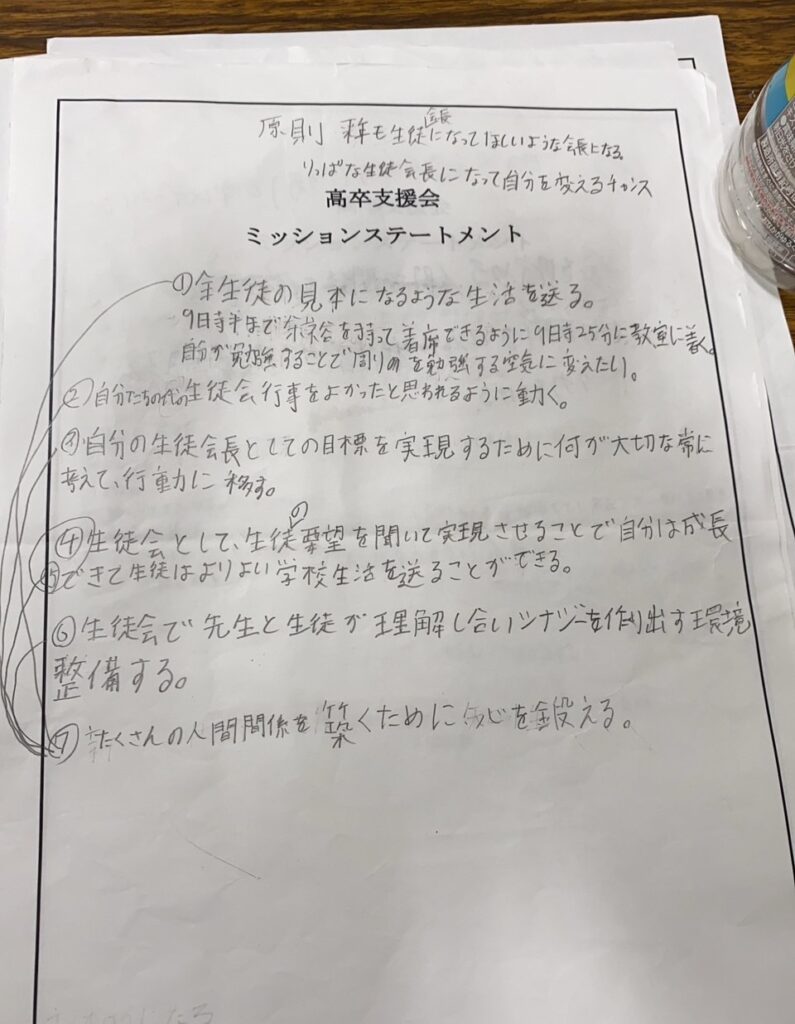 原則 来年も生徒会長になってほしいような会長になる。
りっぱな生徒会長になって自分を変えるチャンス
高卒支援会
ミッションステートメント
①全生徒の見本になるような生活を送る。
9時半まで余裕を持って着席できるように9時25分に教室に着く。
自分が勉強することで周りのを勉強する空気に変えたい。
②自分たちの代の生徒会行事をよかったと思われるように動く。
③自分の生徒会長としての目標を実現するために何が大切な常に
考えて、行動に移す。
④生徒会として、生徒の要望を聞いて実現させることで自分は成長
⑤できて生徒はよりよい学校生活を送ることができる。
⑥生徒会で先生と生徒が理解し合いシナジーを作り出す環境
整備する。
⑦たくさんの人間関係を築くために心を鍛える。